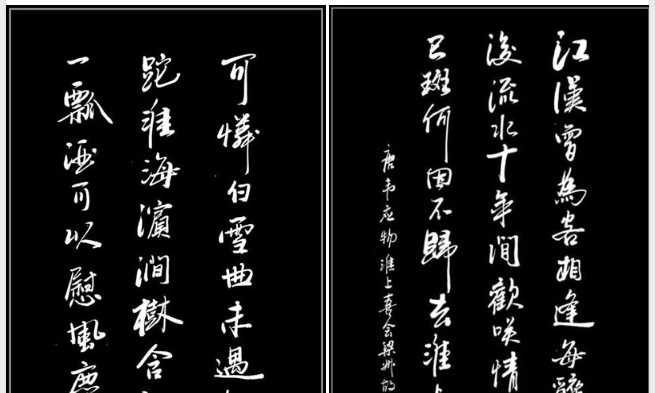 可憐白雪曲未遇
跎淮海濱澗樹含
一瓢酒可以慰風
江漢曾為客相逢每醉
後流水十年間歡咲情
已斑何因不歸去淮上
唐韦应物淮上喜会梁州故